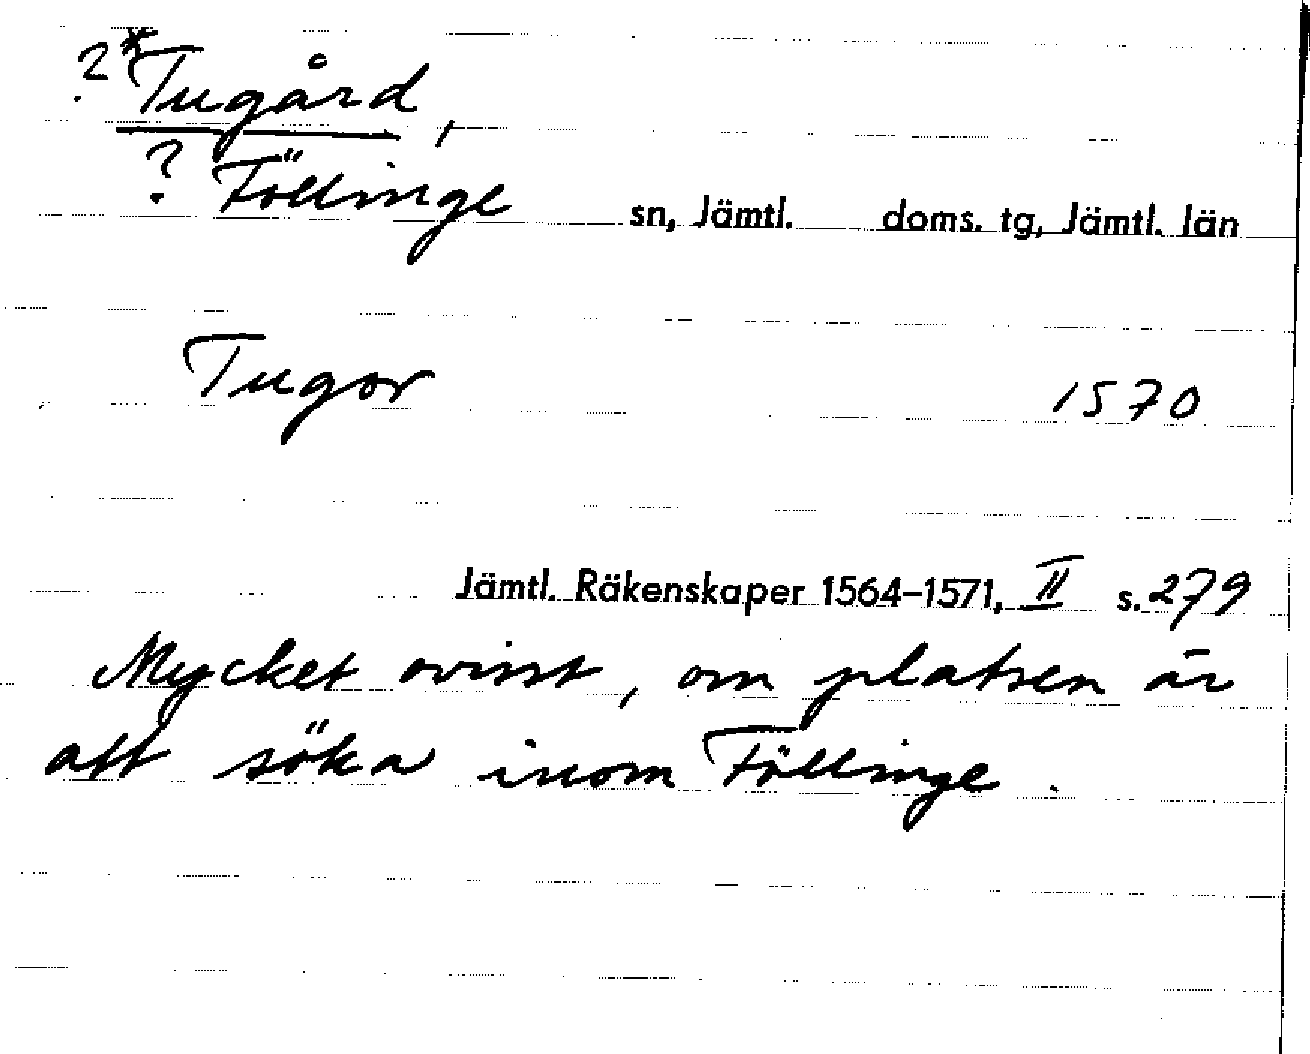 ?*Tugård,
? Föllinge sn, Jämtl. doms. tg, Jämtl. län
Tugor 1570
Jämtl. Räkenskaper 1564–1571, II s. 279
Mycket ovisst, om platsen är
att söka inom Föllinge.